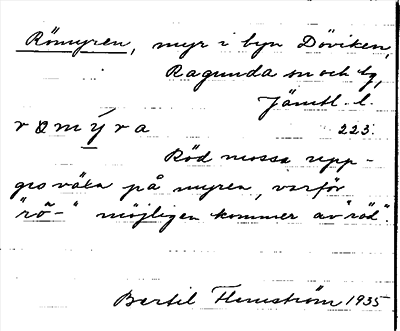 Römyren, myr i byn Döviken,
Ragunda sn och tg,
Jämtl. l.
römýra 223.
Röd mossa upp-
ges växa på myren, varför
"rö-" möjligen kommer av "röd".
Bertil Flemström 1935